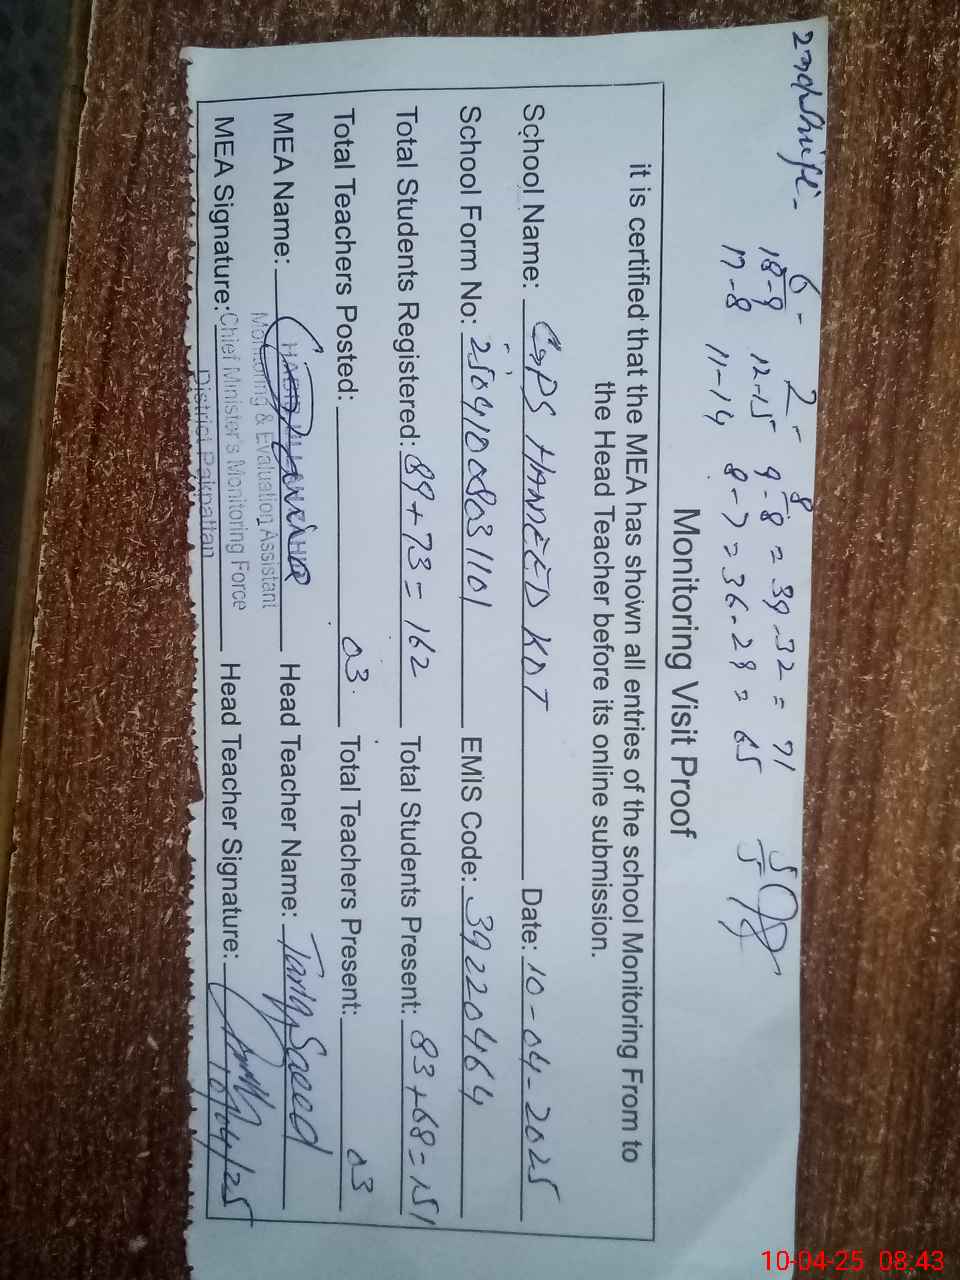 6- 2- 8
18-9 12-15 9-8 = 39-32 = 71
17-8 11-14 8-7 = 36-29 = 65
Monitoring Visit Proof
it is certified that the MEA has shown all entries of the school Monitoring From to
the Head Teacher before its online submission.
School Name: GPS HAMEED KOT Date: 10-04-2025
School Form No: 25041008031101 EMIS Code: 39220464
Total Students Registered: 89+73=162 Total Students Present: 83+68=151
Total Teachers Posted: 03 Total Teachers Present: 03
MEA Name: Head Teacher Name: Tariq Saeed
Monitoring & Evaluation Assistant
MEA Signature: Chief Minister's Monitoring Force Head Teacher Signature: 10/04/25
District Pakpattan
10-04-25 08:43